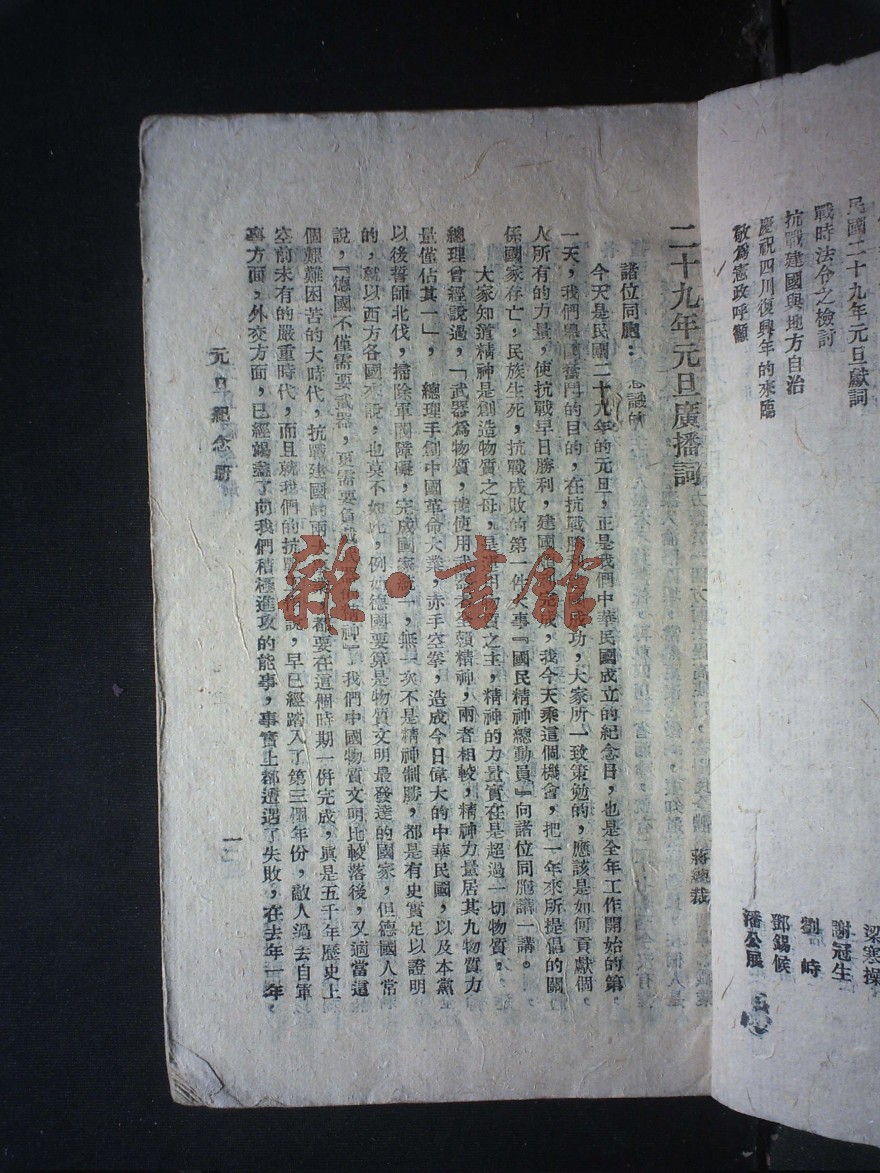 民國二十九年元旦獻詞 梁寒操
戰時法令之檢討 謝冠生
抗戰建國與地方自治 劉峙
慶祝四川復興年的來臨 鄧錫候
敬爲憲政呼籲 潘公展
二十九年元旦廣播詞 蔣總裁
諸位同胞：
今天是民國二十九年的元旦，正是我們中華民國成立的紀念日，也是全年工作開始的第
一天，我們舉國奮鬥的目的，在抗戰勝 國成功，大家所一致策勉的，應該是如何貢獻個
人所有的力量，使抗戰早日勝利，建國 完成，我今天乘這個機會，把一年來所提倡的關
係國家存亡，民族生死，抗戰成敗的第一件大事『國民精神總動員』向諸位同胞講一講。
大家知道精神是創造物質之母，是 用物質之主，精神的力量實在是超過一切物質。
總理曾經說過，「武器爲物質，能使用武器者全賴精神，兩者相較，精神力量居其九物質力
量僅佔其一」，總理手創中國革命大業，赤手空拳，造成今日偉大的中華民國，以及本黨
以後誓師北伐，掃除軍閥障礙，完成國家統一，無一次不是精神制勝，都是有史實足以證明
的，就以西方各國來說，也莫不如此，例如德國要算是物質文明最發達的國家，但德國人常
說，『德國不僅需要武器，更需要負 精神』，我們中國物質文明比較落後，又適當這
個艱難困苦的大時代，抗戰建國的兩大 都要在這個時期一併完成，眞是五千年歷史上
空前未有的嚴重時代，而且就我們的抗戰 說，早已經踏入了第三個年份，敵人過去自軍
事方面，外交方面，已經竭盡了向我們積極進攻的能事，事實上都遭遇了失敗，在去年一年，
元旦紀念册
一
雜·書館